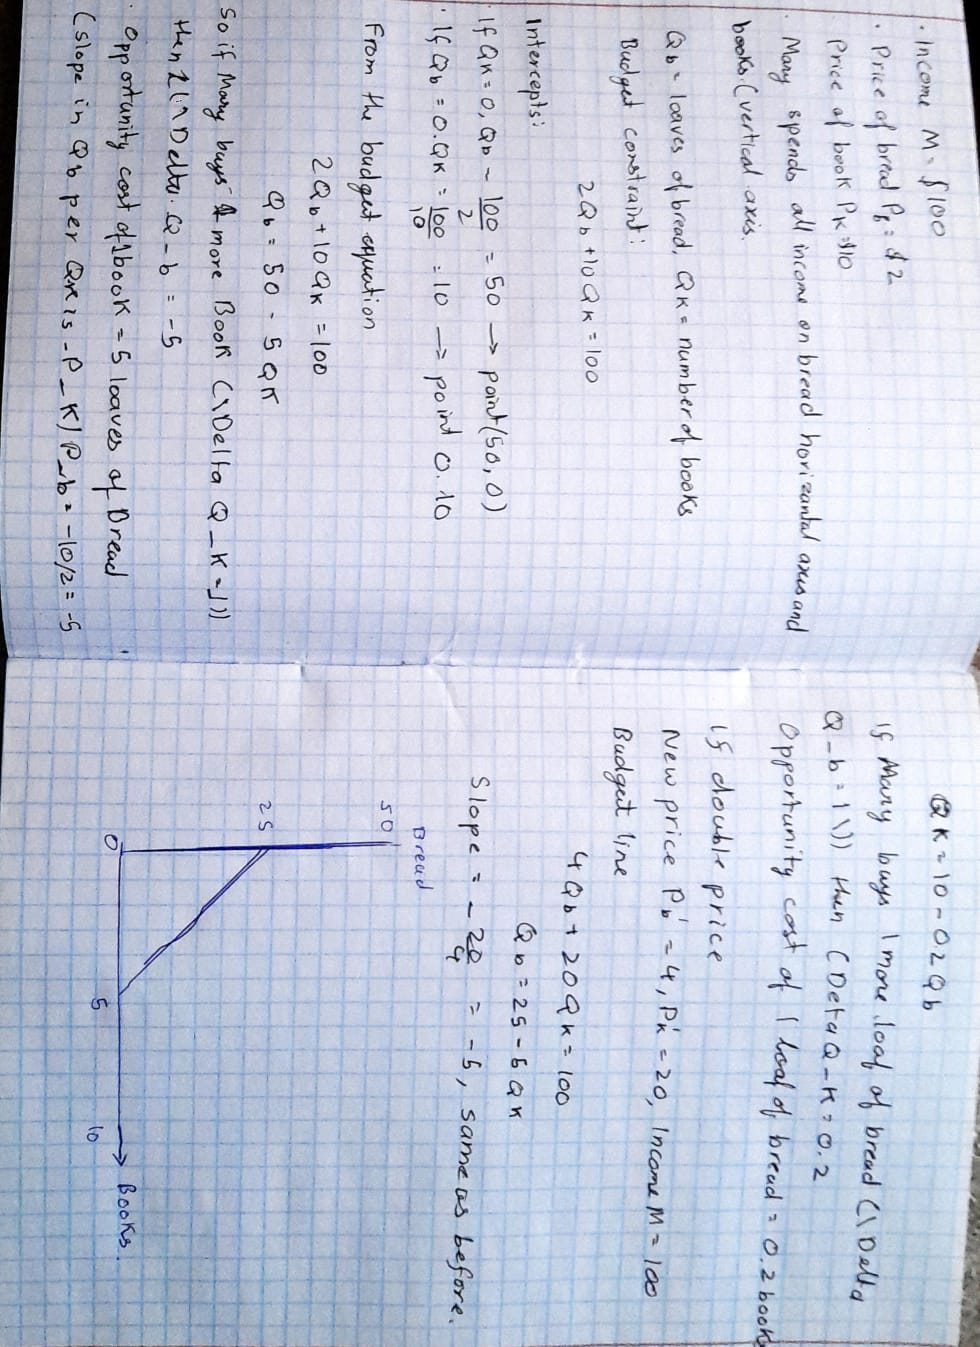 · Income M = $100
· Price of bread Pb = $2
Price of book PK = $10
· Mary spends all income on bread horizantal axis and
books. (vertical axis.
Qb = loaves of bread, QK = number of books
Budget constraint:
2Qb + 10QK = 100
Intercepts:
· If QK = 0, Qb - 100/2 = 50 → point (50, 0)
· If Qb = 0. QK = 100/10 = 10 → point 0.10
From the budget equation
2Qb + 10QK = 100
Qb = 50 - 5QK
So if Mary buys 1 more Book (\Delta Q_K = 1))
then 1(\Delta Q_b = -5
· Opportunity cost of 1 book = 5 loaves of Bread
(Slope in Qb per QK is -P_K/P_b = -10/2 = -5
QK = 10 - 0.2Qb
If Mary buys 1 more loaf of bread (\Delta
Q_b = 1\)) then (Deta Q_K = 0.2
Opportunity cost of 1 loaf of bread = 0.2 books
If double price
New price P'b = 4, P'K = 20, Income M = 100
Budget line
4Qb + 20QK = 100
Qb = 25 - 5QK
Slope = -20/4 = -5, same as before.
Bread
50
25
0
5
10
Books.